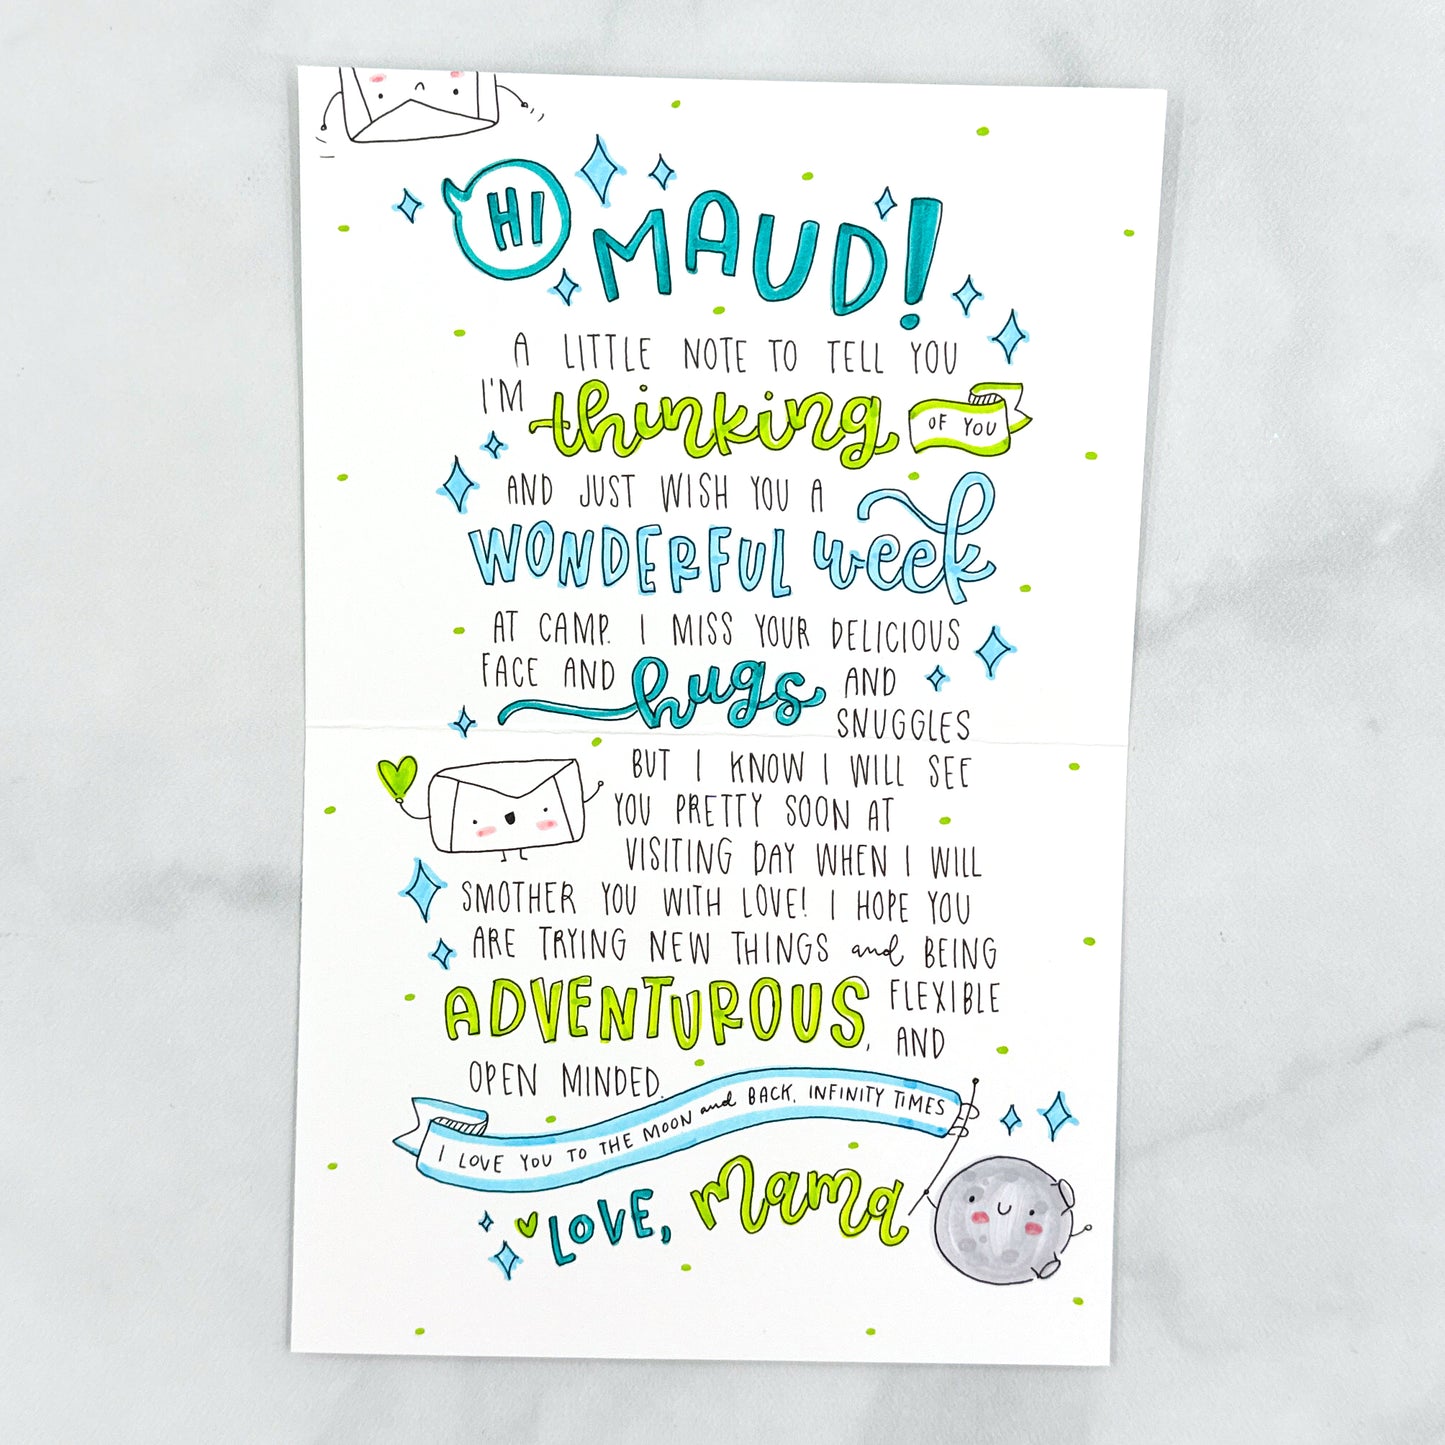 HI MAUD!
A LITTLE NOTE TO TELL YOU
I'M thinking OF YOU
AND JUST WISH YOU A
WONDERFUL week
AT CAMP. I MISS YOUR DELICIOUS
FACE AND hugs AND
SNUGGLES
BUT I KNOW I WILL SEE
YOU PRETTY SOON AT
VISITING DAY WHEN I WILL
SMOTHER YOU WITH LOVE! I HOPE YOU
ARE TRYING NEW THINGS and BEING
ADVENTUROUS, FLEXIBLE
AND
OPEN MINDED.
I LOVE YOU TO THE MOON and BACK, INFINITY TIMES
LOVE, mama